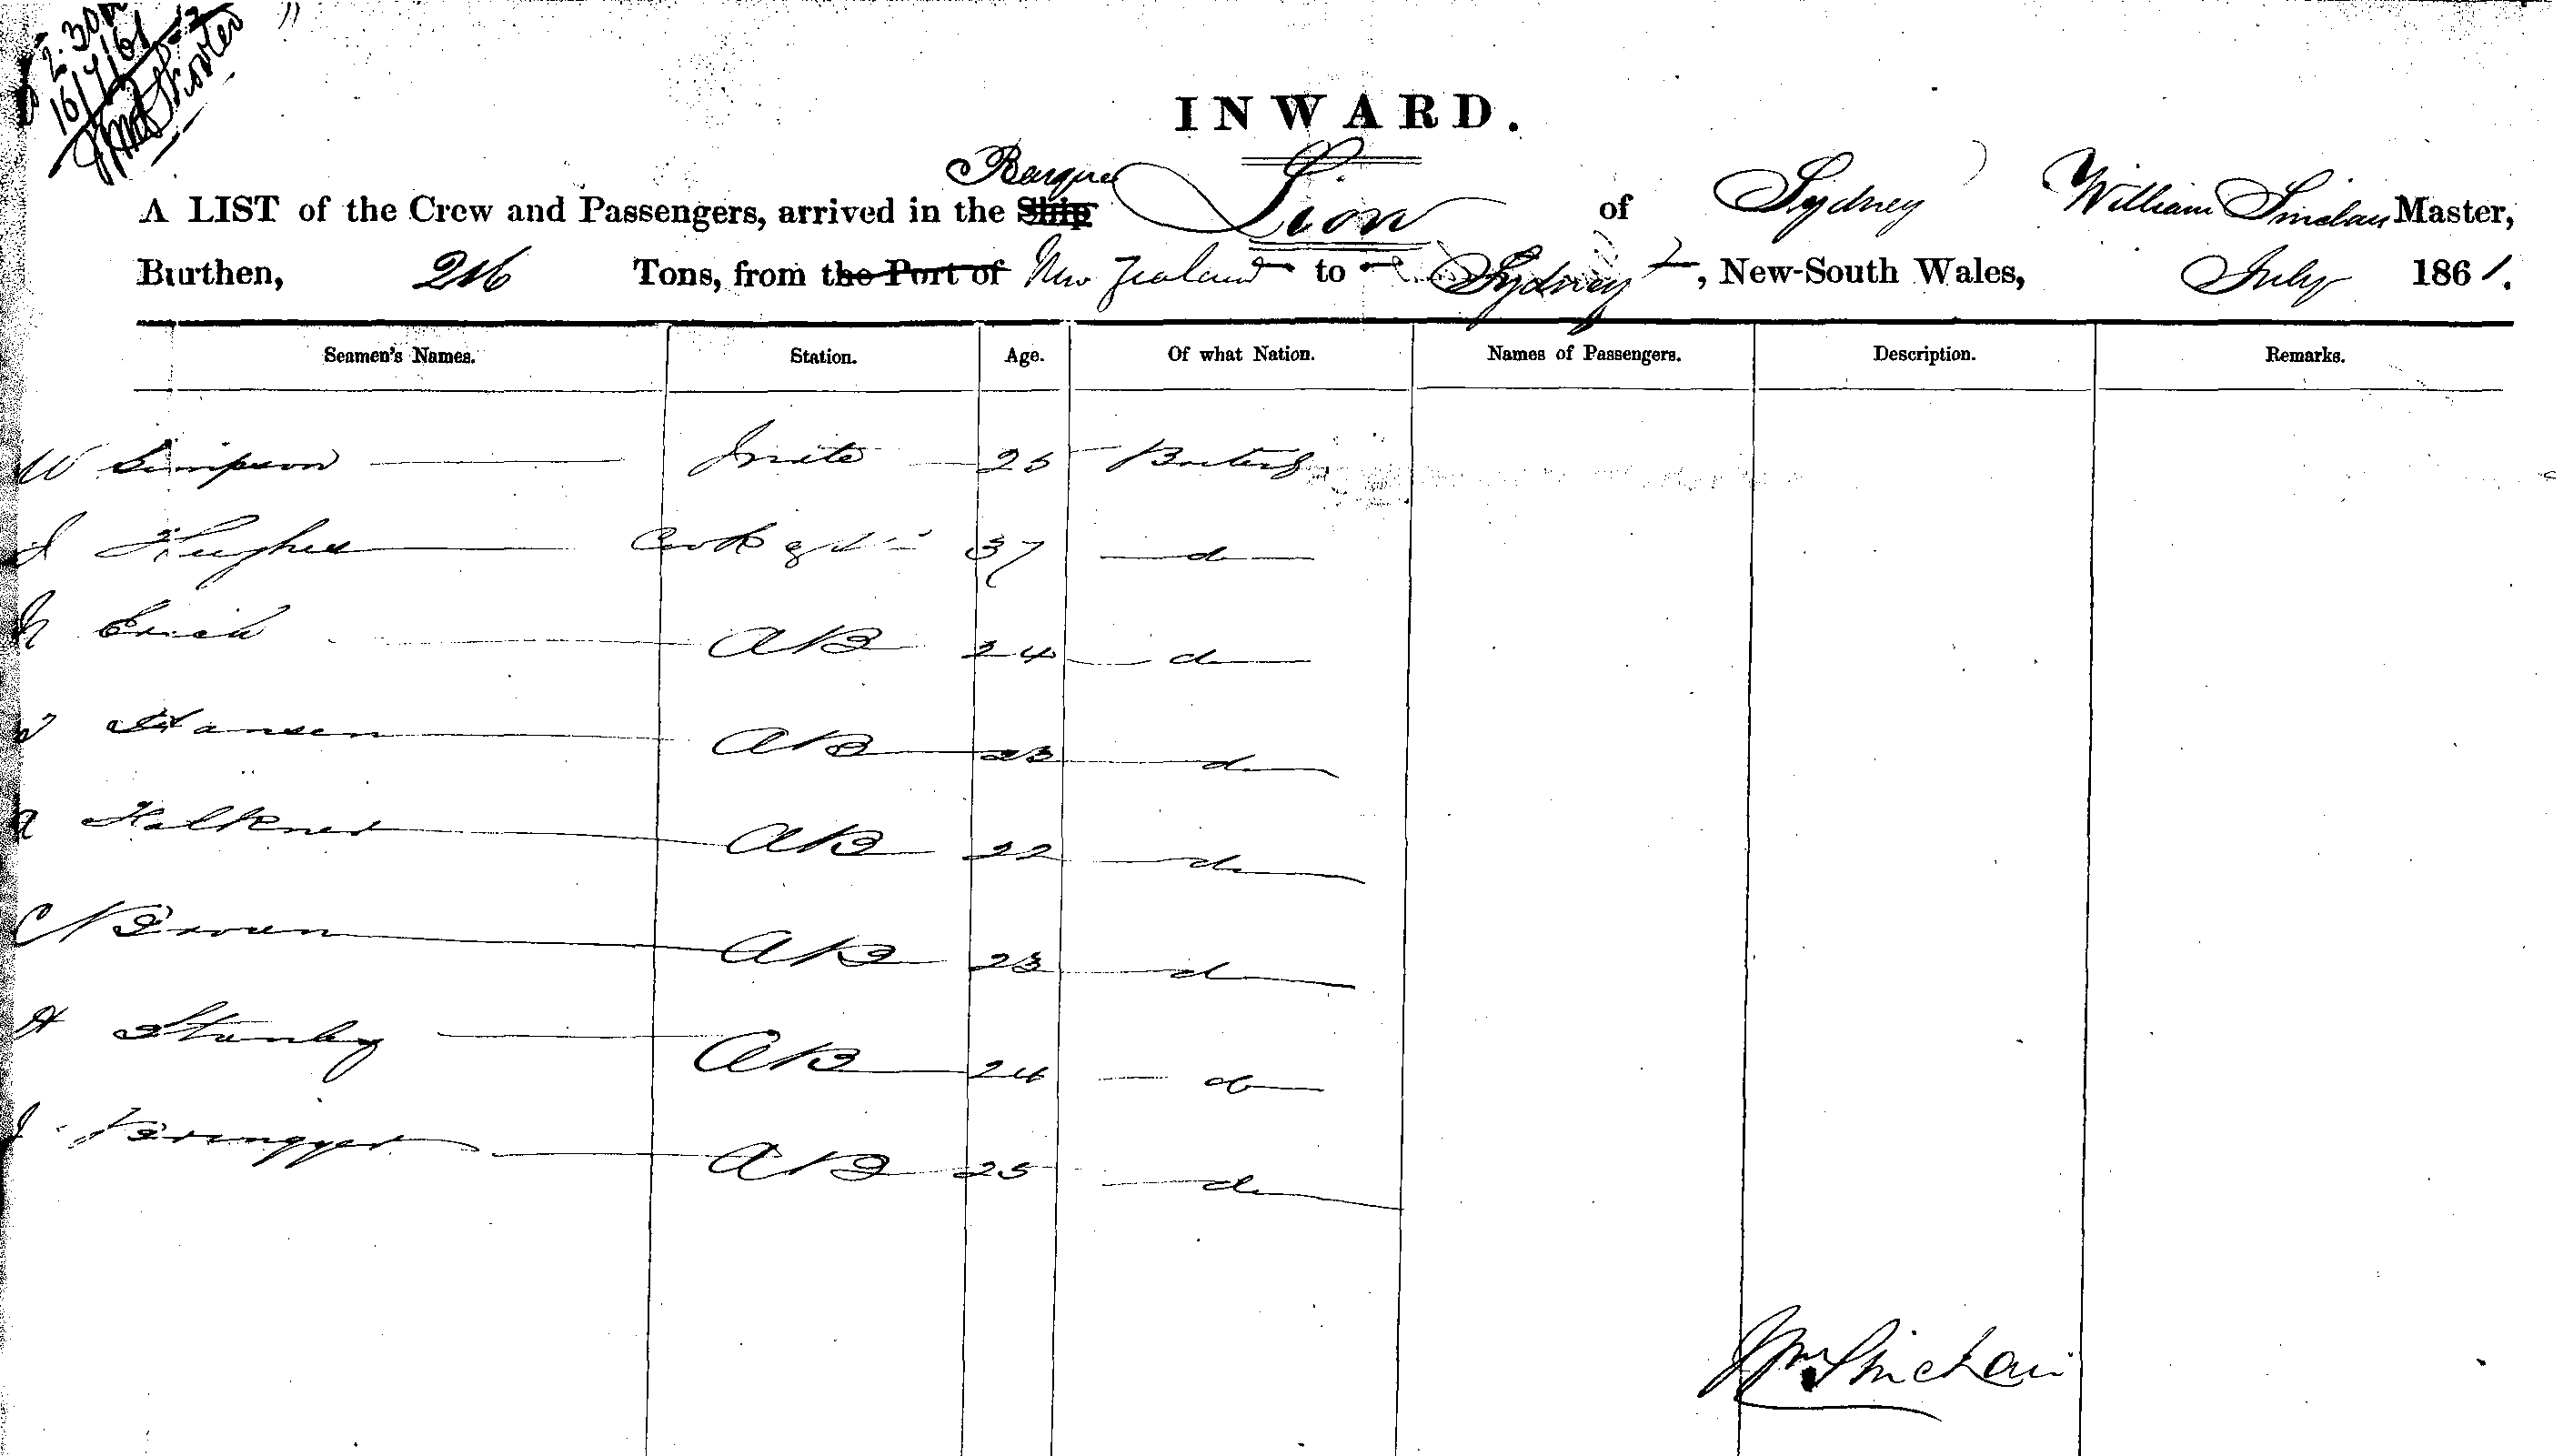 2.30
16/7/61
INWARD.
A LIST of the Crew and Passengers, arrived in the Ship Barque Lion of Sydney William Sinclair Master,
Burthen, 216 Tons, from the Port of New Zealand to Sydney, New-South Wales, July 1861.
Seamen's Names. Station. Age. Of what Nation. Names of Passengers. Description. Remarks.
W Simpson Mate 25
J Hughes Cook 37 do
AB 24 do
Hansen AB 23 do
Falkner AB 22 do
C Brown AB 23 do
H Stanley AB 24 do
J AB 25 do
Wm Sinclair